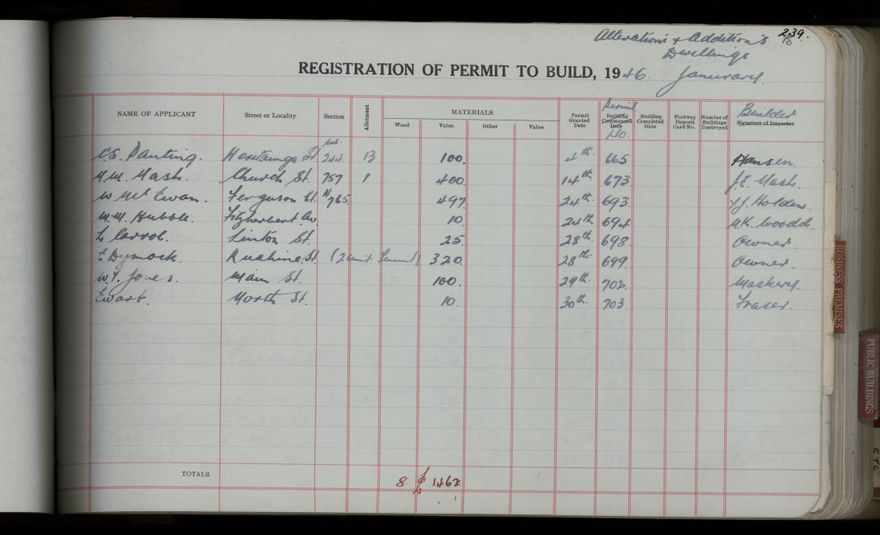 239.
Alterations & Addition's to
Dwellings
REGISTRATION OF PERMIT TO BUILD, 1946. January.
NAME OF APPLICANT Street or Locality Section Allotment MATERIALS Permit Granted Date Permit Building Commenced Date No. Building Completed Date Footway Deposit Card No. Number of Buildings Destroyed Builder Signature of Inspector
Wood Value Other Value
C.S. Panting. Heretaunga St. Sub. 244 13 100. 4th 665 Hansen.
M.M. Mash. Church St. 757 1 400. 14th 673. J.E. Mash.
W McEwan. Ferguson St. 765 497. 24th 693. Holden.
M.M. Hubble. Fitzherbert Av. 10. 24th 694. Woodd.
L Carrol. Linton St. 25. 28th 698. Owner.
E Dymock. Ruahine St. (2 unit 320. 28th 699. Owner.
W.Y. Jones. Main St. 100. 29th 702. Maskery.
Ewart. North St. 10. 30th 703. Fraser.
TOTALS 8 £ 1462
BUSINESS PREMISES
PUBLIC BUILDINGS
ETC